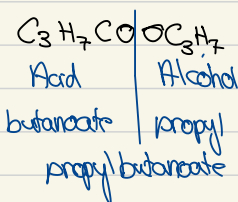 C₃H₇COOC₃H₇
Acid Alcohol
butanoate propyl
propyl butanoate